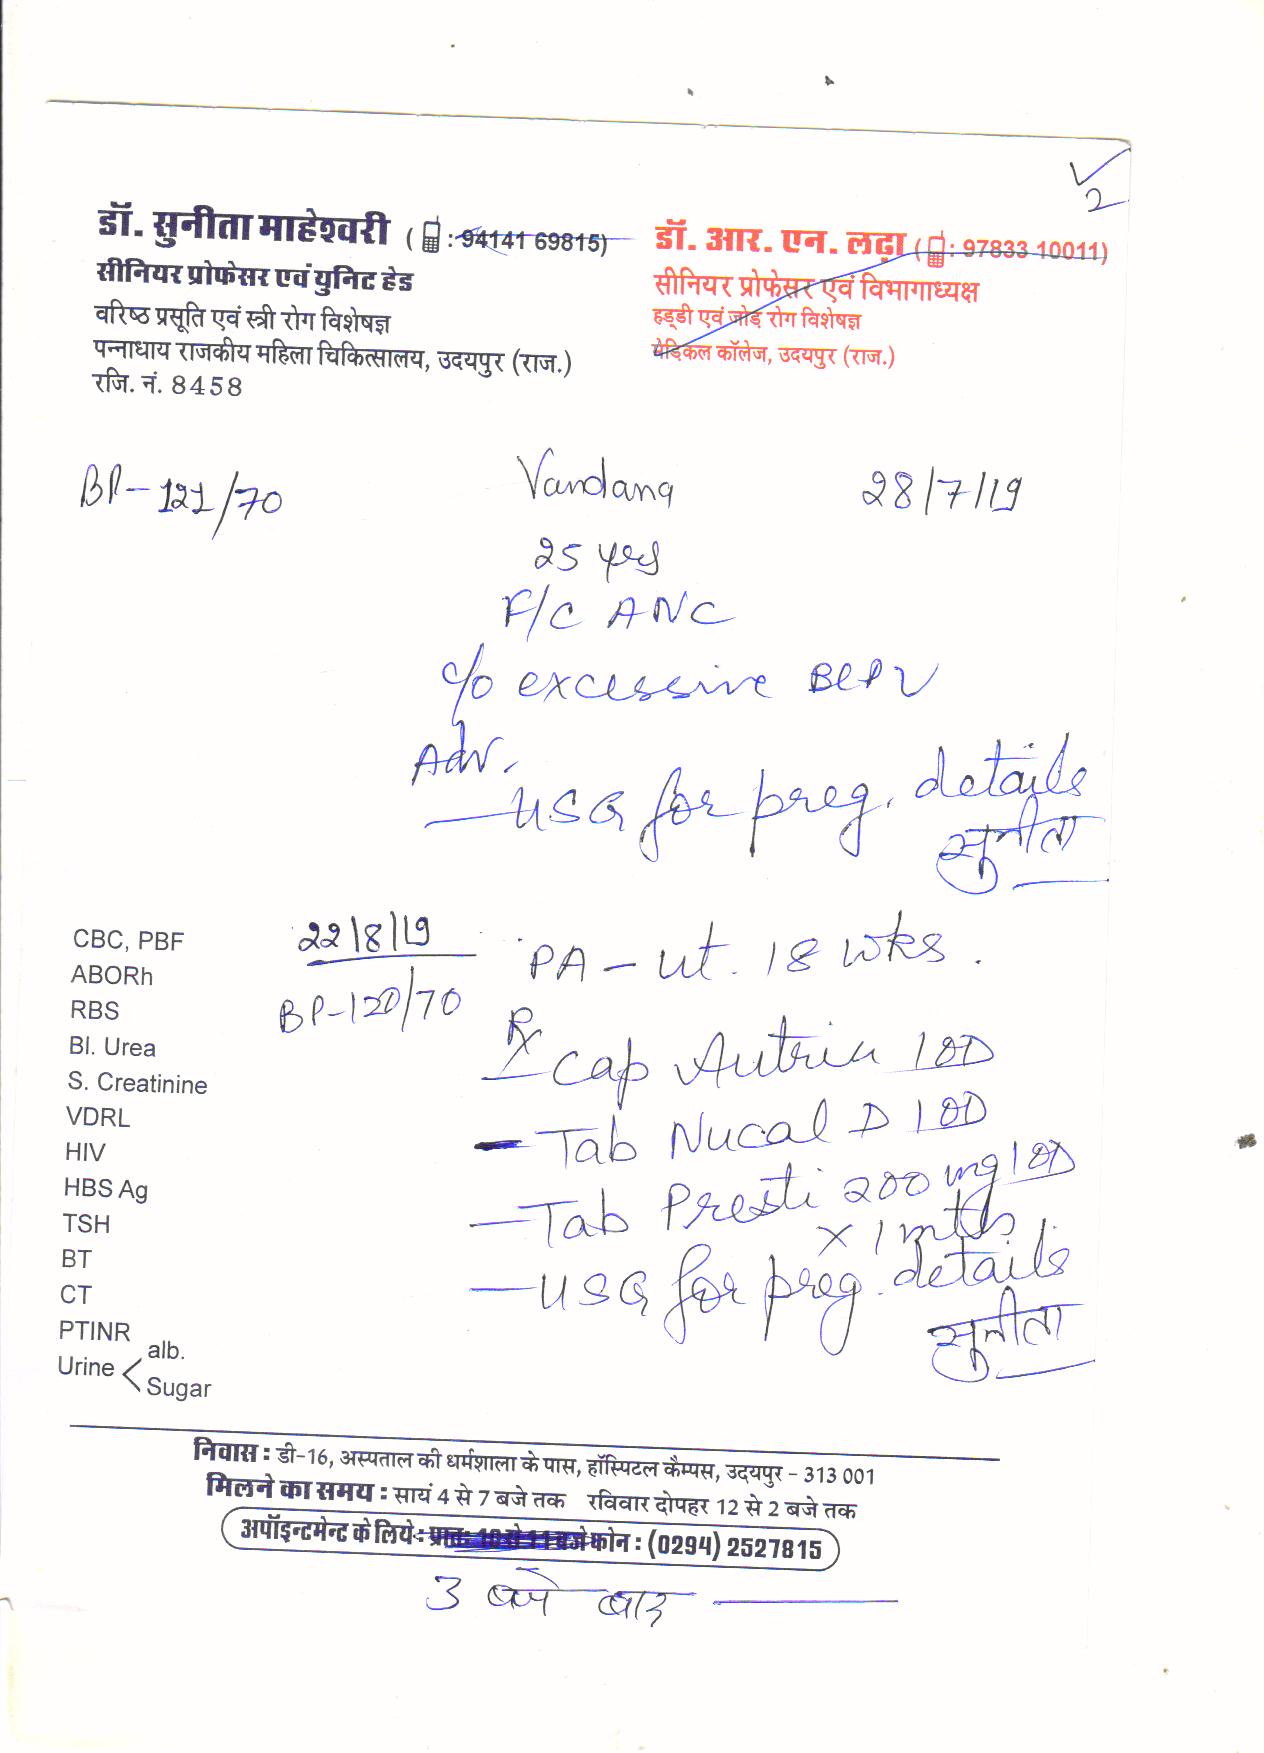 2
डॉ. सुनीता माहेश्वरी ( : 94141 69815)
सीनियर प्रोफेसर एवं युनिट हेड
वरिष्ठ प्रसूति एवं स्त्री रोग विशेषज्ञ
पन्नाधाय राजकीय महिला चिकित्सालय, उदयपुर (राज.)
रजि. नं. 8458
डॉ. आर. एन. लढ़ा ( : 97833 10011)
सीनियर प्रोफेसर एवं विभागाध्यक्ष
हड्डी एवं जोड़ रोग विशेषज्ञ
मेडिकल कॉलेज, उदयपुर (राज.)
BP- 121/70
Vandana
28/7/19
25 yrs
F/C ANC
c/o excessive
Adv.
- USG for preg. details
सुनीता
CBC, PBF
ABORh
RBS
Bl. Urea
S. Creatinine
VDRL
HIV
HBS Ag
TSH
BT
CT
PTINR
Urine < alb.
Sugar
22/8/19
BP-120/70
PA - ut. 18 wks.
Rx
- Cap Autrin 1 OD
- Tab Nucal D 1 OD
- Tab Presti 200 mg 1 OD
x 1 mth
- USG for preg. details
सुनीता
निवास : डी-16, अस्पताल की धर्मशाला के पास, हॉस्पिटल कैम्पस, उदयपुर - 313 001
मिलने का समय : सायं 4 से 7 बजे तक रविवार दोपहर 12 से 2 बजे तक
अपॉइन्टमेन्ट के लिये : प्रातः 10 से 11 बजे फोन : (0294) 2527815
3 बजे बाद